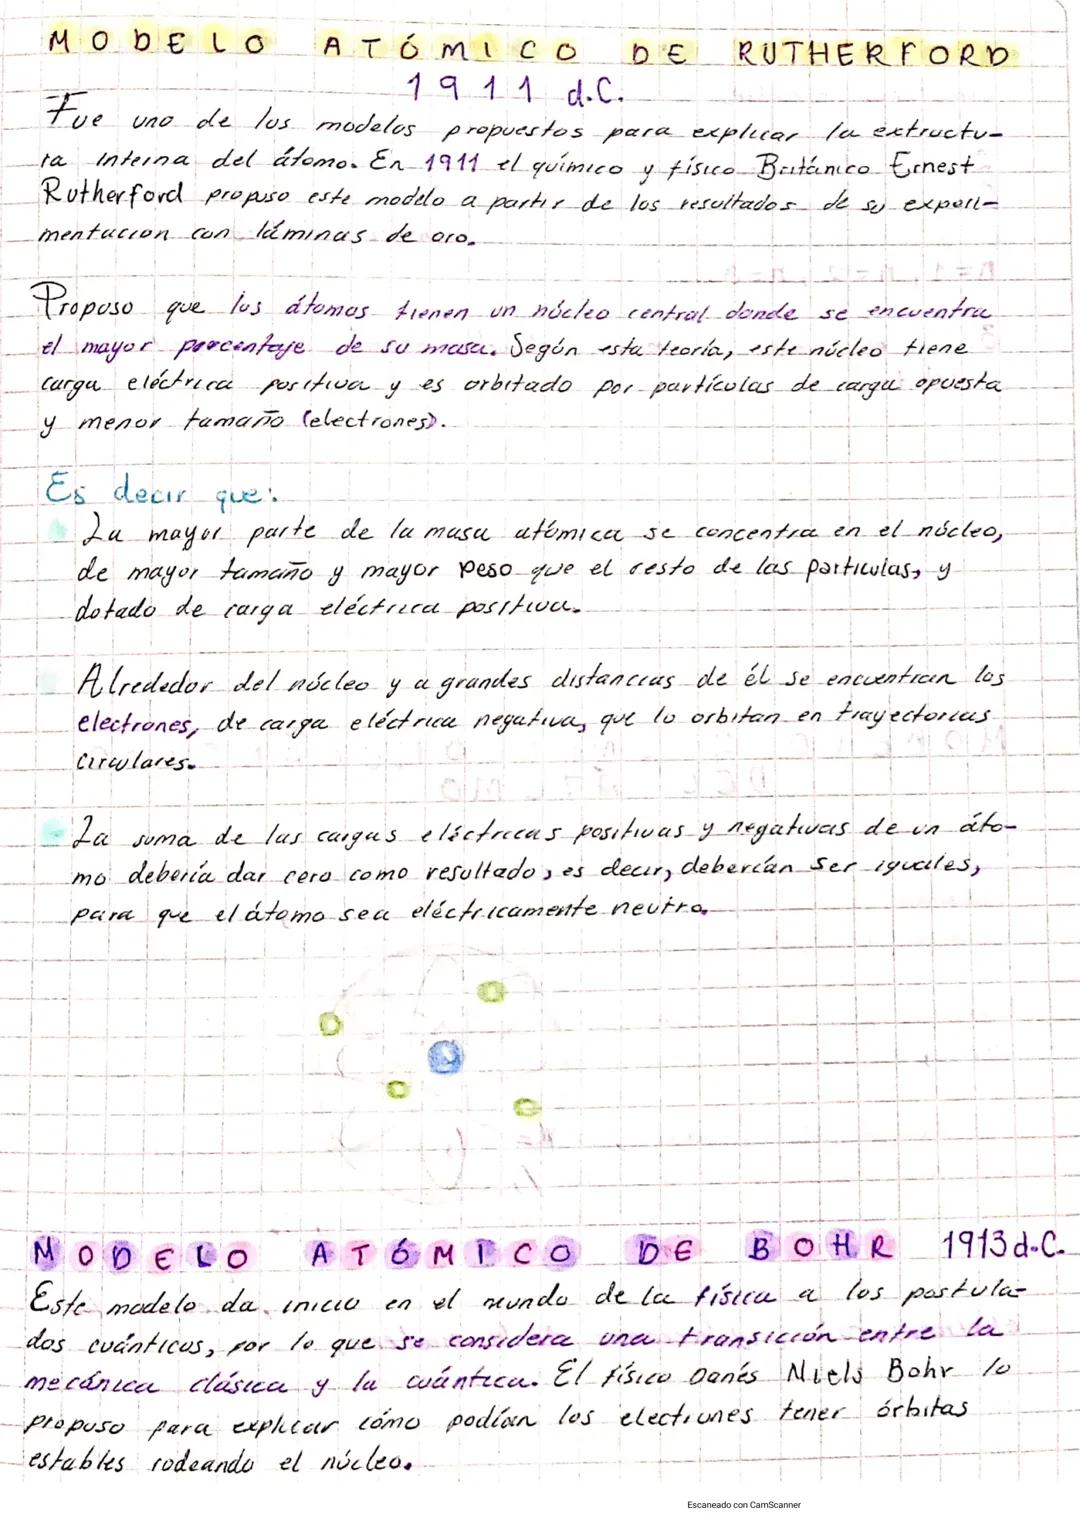 MODELO ATÓMICO DE RUTHERFORD
1911 d.C.
Fue uno de los modelos propuestos para explicar la extructu-
ra interna del átomo. En 1911 el químico y físico Británico Ernest
Rutherford propuso este modelo a partir de los resultados de su experi-
mentación con láminas de oro.
Propuso que los átomos tienen un núcleo central donde se encuentra
el mayor porcentaje de su masa. Según esta teoría, este núcleo tiene
carga eléctrica positiva y es orbitado por partículas de carga opuesta
y menor tamaño (electrones).
Es decir que:
La mayor parte de la masa atómica se concentra en el núcleo,
de mayor tamaño y mayor peso que el resto de las partículas, y
dotado de carga eléctrica positiva.
Alrededor del núcleo y a grandes distancias de él se encuentran los
electrones, de carga eléctrica negativa, que lo orbitan en trayectorias
circulares.
La suma de las cargas eléctricas positivas y negativas de un áto-
mo debería dar cero como resultado, es decir, deberían ser iguales,
para que el átomo sea eléctricamente neutro.
MODELO ATÓMICO DE BOHR 1913 d.C.
Este modelo da inicio en el mundo de la física a los postula-
dos cuánticos, por lo que se considera una transición entre la
mecánica clásica y la cuántica. El físico Danés Niels Bohr lo
propuso para explicar cómo podían los electrones tener órbitas
estables rodeando el núcleo.
Escaneado con CamScanner